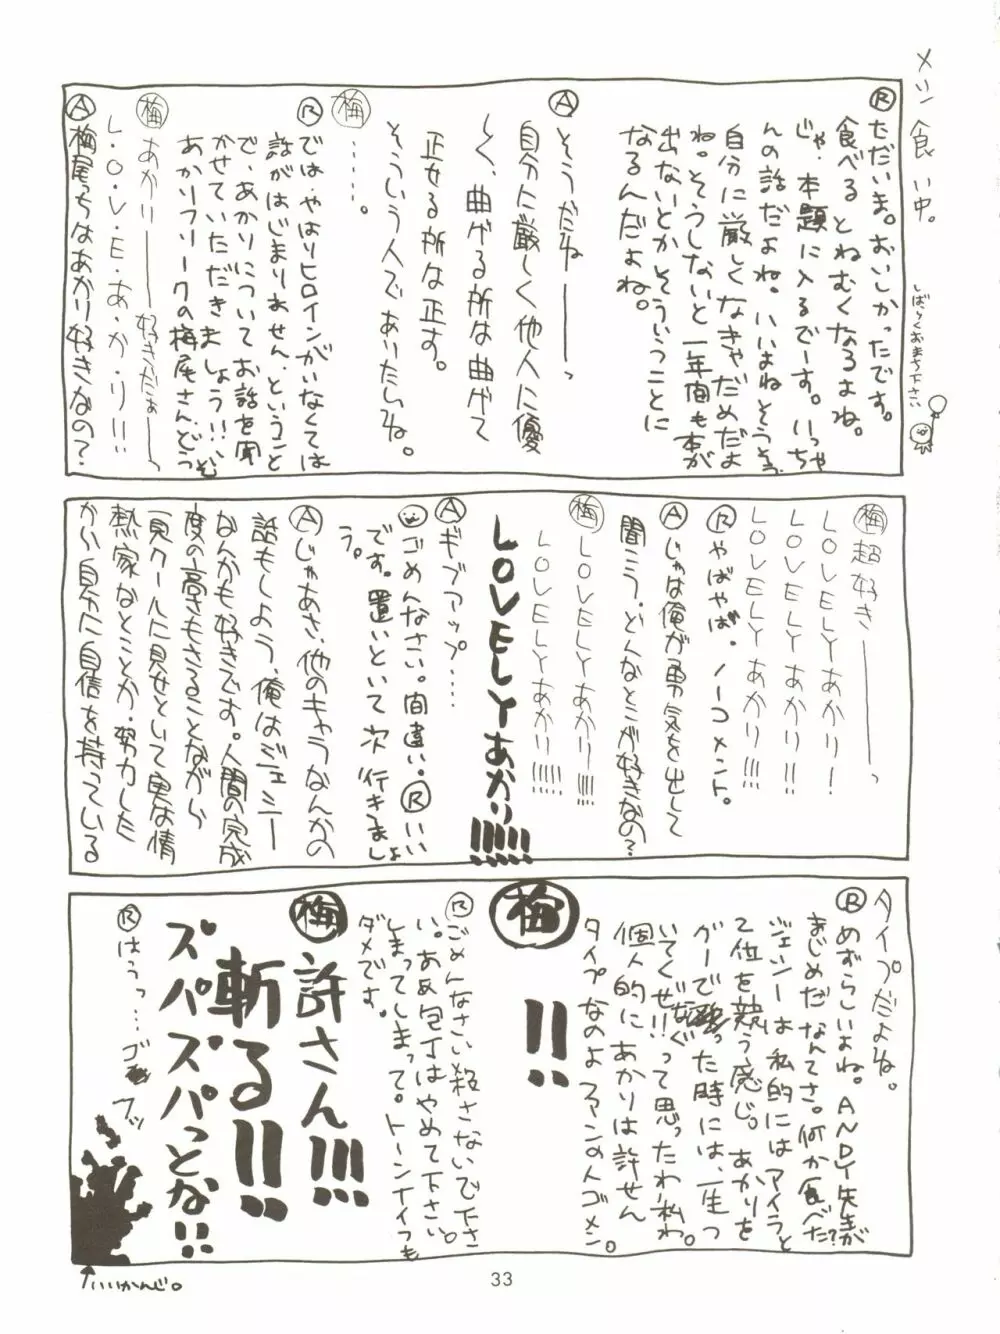 メシ食い中。
しばらくおまち下さい
Ⓡただいま。おいしかったです。
食べるとねむくなるよね。
じゃ、本題に入るでーす。いっちゃ
んの話だよね。いいよねそうそう
自分に厳しくなきゃだめだよ
ね。そうしないと一年間も本が
出ないとかそういうことに
なるんだよね。
Ⓐそうだねーーーっ
自分に厳しく他人に優
しく、曲げる所は曲げて
正せる所は正す。
そういう人でありたいね。
梅……。
Ⓡでは、やはりヒロインがいなくては
話がはじまりません。ということ
で、あかりについてお話を聞
かせていただきましょう!!、ぞ
あかりフリークの梅尾さん、どう
梅あかりーーー好きだぁーーっ
L・O・V・E・あ・か・り!!
Ⓐ梅尾っちはあかり好きなの?
梅超好きーーーーっ
LOVELYあかり!
LOVELYあかり!!
LOVELYあかり!!!
Ⓡやばやば。ノーコメント。
Ⓐじゃは俺が勇気を出して
聞こう。どんなとこが好きなの?
梅LOVELYあかり!!!!
LOVELYあかり!!!!!
LOVELYあかり!!!!!!
Ⓐギブアップ……
ごめんなさい。間違い。Ⓡいい
です。置いといて次行きましょ
う。
Ⓐじゃあさ、他のキャラなんかの
話もしよう、俺はジェシー
なんかも好きです。人間の完成
度の高さもさることながら
一見クールに見せといて実は情
熱家なとことか、努力した
から自分に自信を持っている
タイプだよね。
Ⓡめずらしいよね。ANDY先生が
まじめだなんてさ。何か食べた?
ジェシーは私的にはアイラと
2位を競う感じ。あかりを
グーでなぐった時には、一生つ
いてくぜ!!って思ったわ私わ。
個人的にあかりは許せん
タイプなのよファンの人ゴメン。
梅!!
Ⓡごめんなさい殺さないで下さ
い。あぁ包丁はやめて下さい。
しまってしまって。トーンナイフも
ダメです。
梅許さん!!!
斬る!!
ズパズパっとな!!
Ⓡはうっ…ゴフッ
↑いいかんじ。
33